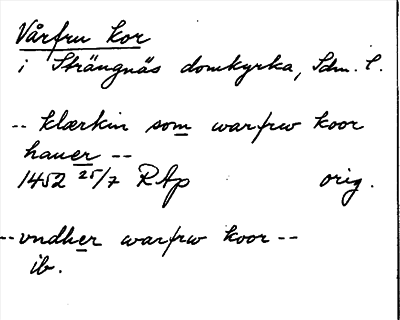 Vårfru kor
i Strängnäs domkyrka, Sdm. l.
-- klærkin som warfrw koor
hauer --
1452 25/7 RAp orig.
-- vndher warfrw koor --
ib.